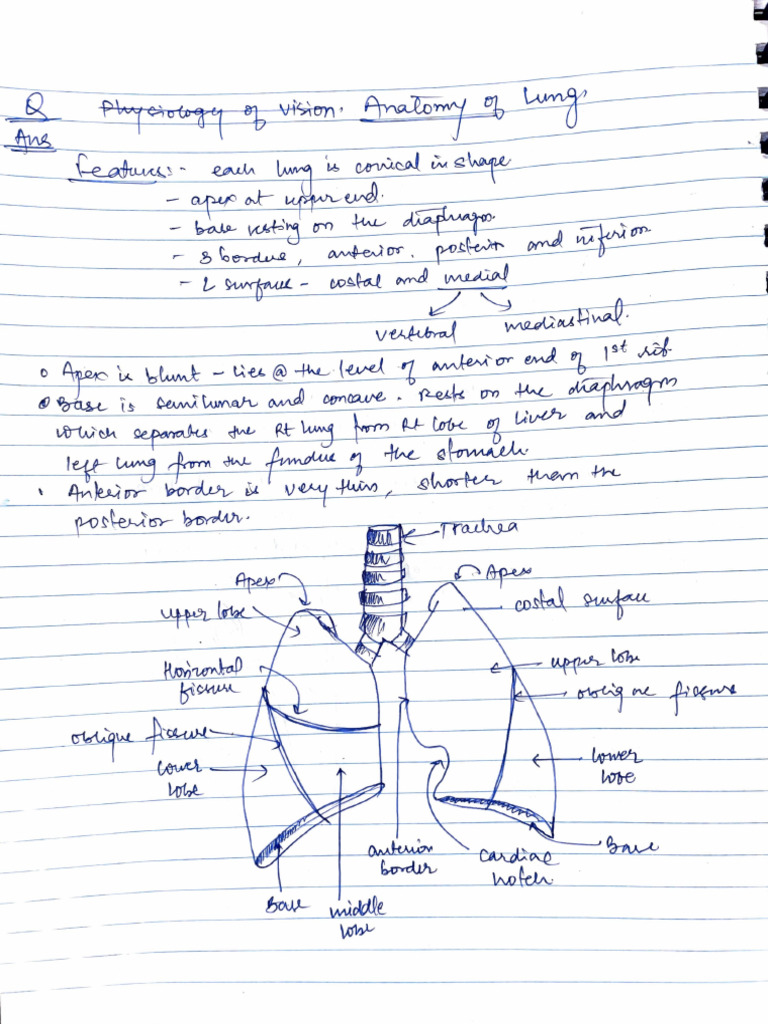 Q Physiology of vision. Anatomy of Lung.
Ans
Features:- each lung is conical in shape
- apex at upper end.
- base resting on the diaphragm.
- 3 borders, anterior. posterior and inferior
- 2 surface - costal and medial
vertebral mediastinal.
Apex is blunt - lies @ the level of anterior end of 1st rib.
Base is semilunar and concave. Rests on the diaphragm
which separates the Rt lung from Rt lobe of liver and
left lung from the fundus of the stomach.
Anterior border is very thin, shorter them the
posterior border.
Trachea
Apex
Apex
upper lobe
costal surface
Horizontal
fissure
upper lobe
oblique fissure
oblique fissure
lower
lobe
lower
lobe
anterior
border
cardiac
notch
Base
Base
middle
lobe